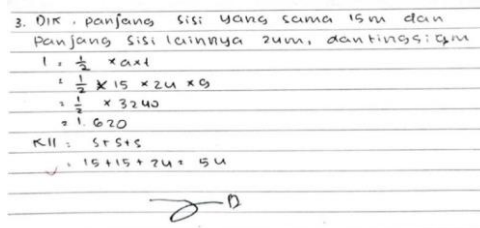 3. DIK. panjang sisi yang sama 15 m dan
panjang sisi lainnya 24m, dan tinggi: 9m
l = 1/2 x a x t
= 1/2 x 15 x 24 x 9
= 1/2 x 3240
= 1.620
Kll = s + s + s
= 15 + 15 + 24 = 54